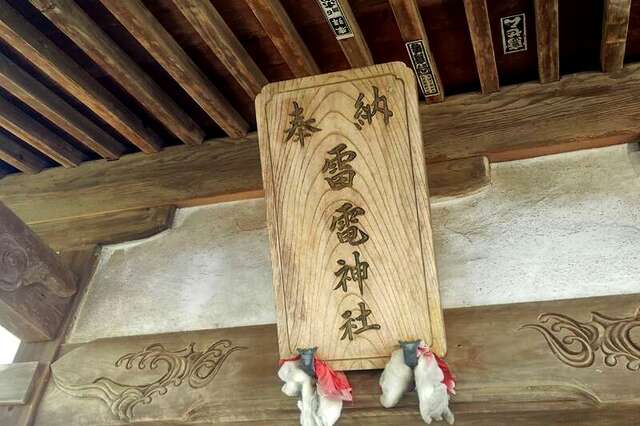 奉納
雷電神社